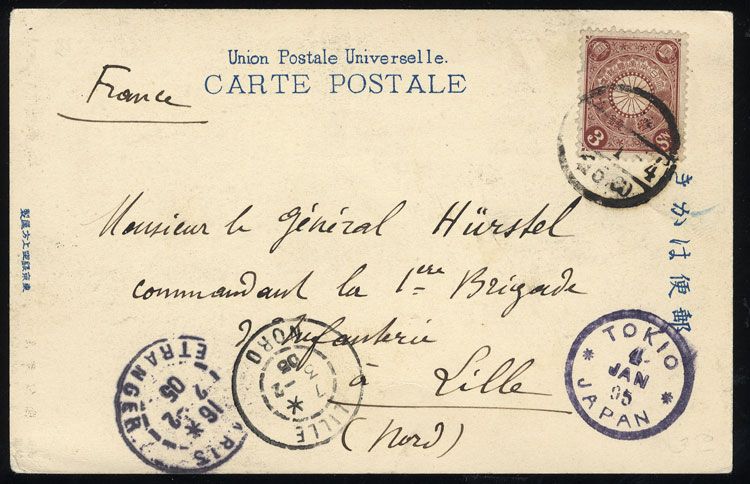 Union Postale Universelle.
CARTE POSTALE
France
3
Monsieur le Général Hürstel
commandant la 1ère Brigade
d'Infanterie
à Lille
(Nord)
郵便はかき
TOKIO
4
JAN
05
JAPAN
LILLE
NORD
ETRANGER
16
05